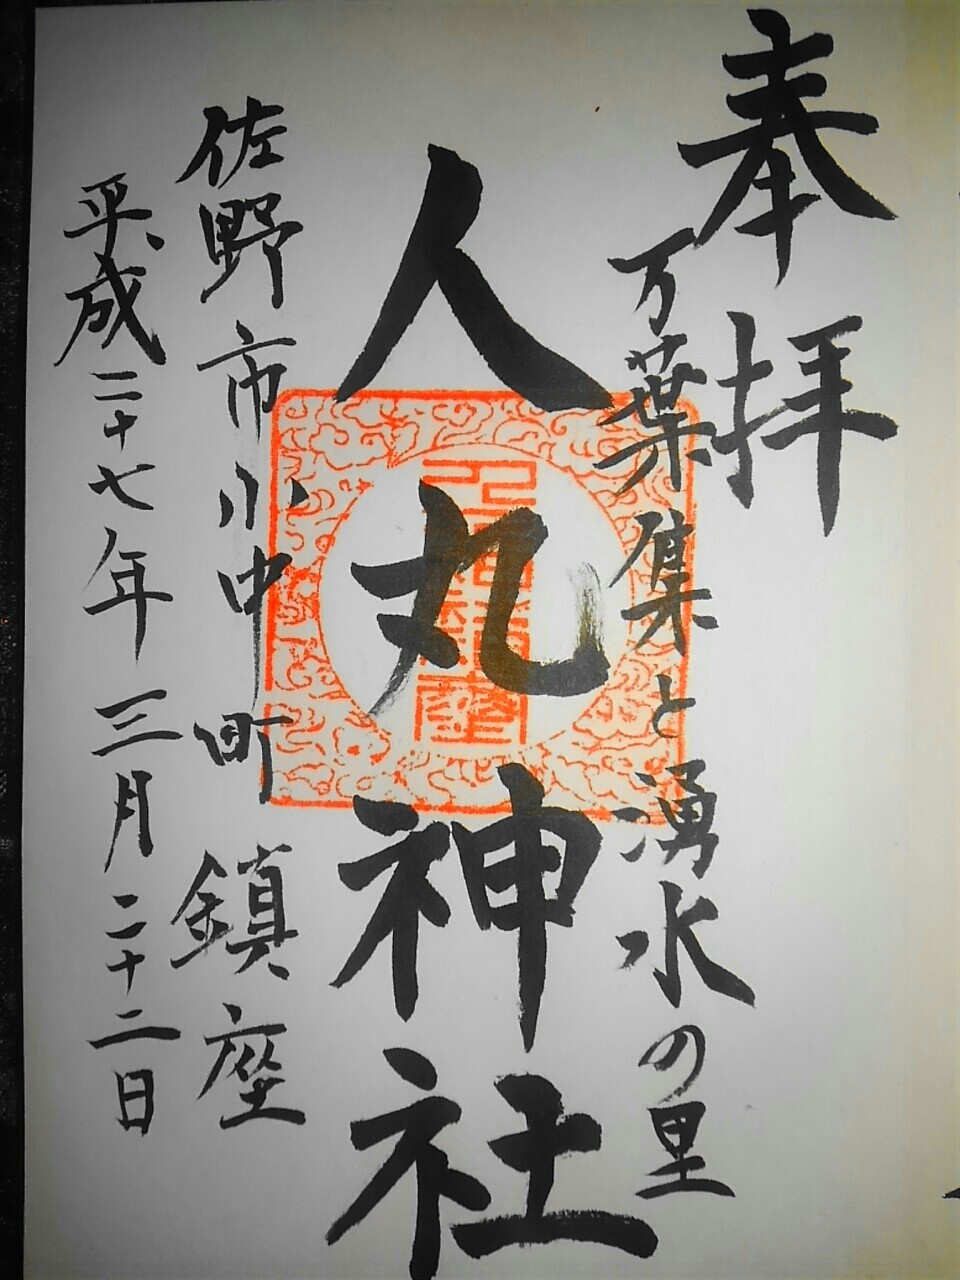 奉拝
万葉集と湧水の里
人丸神社
佐野市小中町 鎮座
平成二十七年三月二十二日